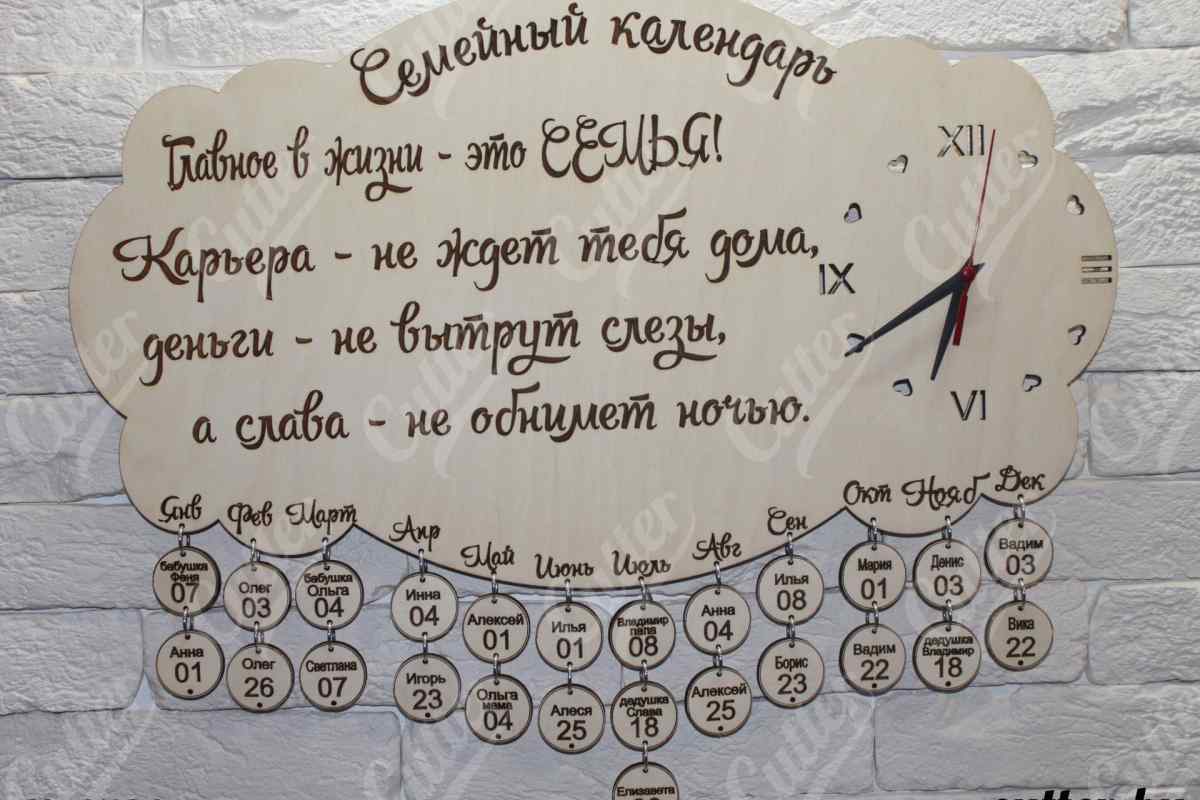 Семейный календарь
Главное в жизни - это СЕМЬЯ!
Карьера - не ждет тебя дома,
деньги - не вытрут слезы,
а слава - не обнимет ночью.
XII
III
VI
IX
Янв
бабушка
Феня
07
Анна
01
Фев
Олег
03
Олег
26
Март
бабушка
Ольга
04
Светлана
07
Апр
Инна
04
Игорь
23
Май
Алексей
01
Ольга
мама
04
Июнь
Илья
01
Алеся
25
Июль
Владимир
папа
08
дедушка
Слава
18
Елизавета
Авг
Анна
04
Алексей
25
Сен
Илья
08
Борис
23
Окт
Мария
01
Вадим
22
Нояб
Денис
03
дедушка
Владимир
18
Дек
Вадим
03
Вика
22
Cutter